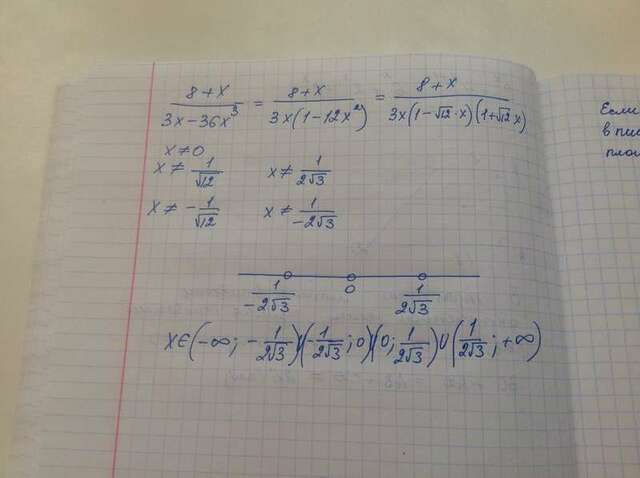 8+x / 3x-36x³ = 8+x / 3x(1-12x²) = 8+x / 3x(1-√12·x)(1+√12x)
x≠0
x≠ 1/√12 x≠ 1/2√3
x≠ -1/√12 x≠ 1/-2√3
1/-2√3 0 1/2√3
x∈(-∞; -1/2√3)(-1/2√3; 0)(0; 1/2√3)∪(1/2√3; +∞)
Если